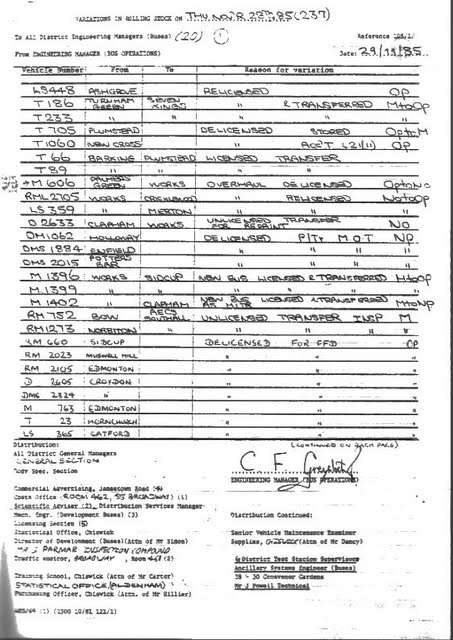 VARIATIONS IN ROLLING STOCK ON THU NOV R 28TH 85 (237)
To All District Engineering Managers (Buses) (20) (1)
From ENGINEERING MANAGER (BUS OPERATIONS) Date: 29/11/85
Vehicle Number From To Reason for variation
LS448 ASHGROVE RELICENSED OP
T 186 TURNHAM GREEN SEVEN KINGS " & TRANSFERRED MtoOp
T 233 " " " " "
T 705 PLUMSTEAD DELICENSED STORED OptoM
T1060 NEW CROSS " ACC'T (21/11) OP
T 66 BARKING PLUMSTEAD LICENSED TRANSFER
T 89 " " " "
M 606 PALMERS GREEN WORKS OVERHAUL DELICENSED
RML 2705 WORKS CRICKLEWOOD " RELICENSED NotoOp
LS 359 " MERTON " " "
D 2633 CLAPHAM WORKS UNLICENSED TRANSFER FOR REPAINT NO
DM1062 HOLLOWAY DELICENSED M.O.T NP.
DMS 1884 ENFIELD " " "
DMS 2015 POTTERS BAR " " "
M 1396 WORKS SIDCUP NEW BUS LICENSED & TRANSFERRED
M 1399 " " " " " "
M 1402 " CLAPHAM NEW BUS LICENSED & TRANSFERRED AS MITR
RM 752 BOW AECS SOUTHALL UNLICENSED TRANSFER INSP M
RM1273 NORBITON " " " " "
RM 660 SIDCUP DELICENSED FOR FFD OP
RM 2023 MUSWELL HILL " "
RM 2105 EDMONTON " "
D 2605 CROYDON " "
DMS 2324 " " "
M 763 EDMONTON " "
T 23 HORNCHURCH " "
LS 365 CATFORD " "
Distribution: (CONTINUED ON BACK PAGE)
All District General Managers
GENERAL SECTION
Spec. Section
C. F.
ENGINEERING MANAGER (BUS OPERATIONS)
Commercial Advertising, Jamestown Road (4)
Costs Office (ROOM 462, 55 BROADWAY) (1)
Scientific Adviser (2), Distribution Services Manager
Mech. Engr. (Development Buses) (3) Distribution Continued:
Licensing Section (5)
Statistical Office, Chiswick Senior Vehicle Maintenance Examiner
Director of Development (Buses)(Attn of Mr Simon) Supplies, (Attn of Mr Dancy)
MR J PARMAR INSPECTION COMPOUND
Traffic BROADWAY, ROOM (2) District Test Station Supervisors
Ancillary Systems Engineer (Buses)
Training School, Chiswick (Attn of Mr Carter) 28 - 30 Grosvenor Gardens
STATISTICAL OFFICE (ALDENHAM) Mr J Powell Technical
Purchasing Officer, Chiswick (Attn of Mr Hillier)
(1) (2300 10/81 121/1)